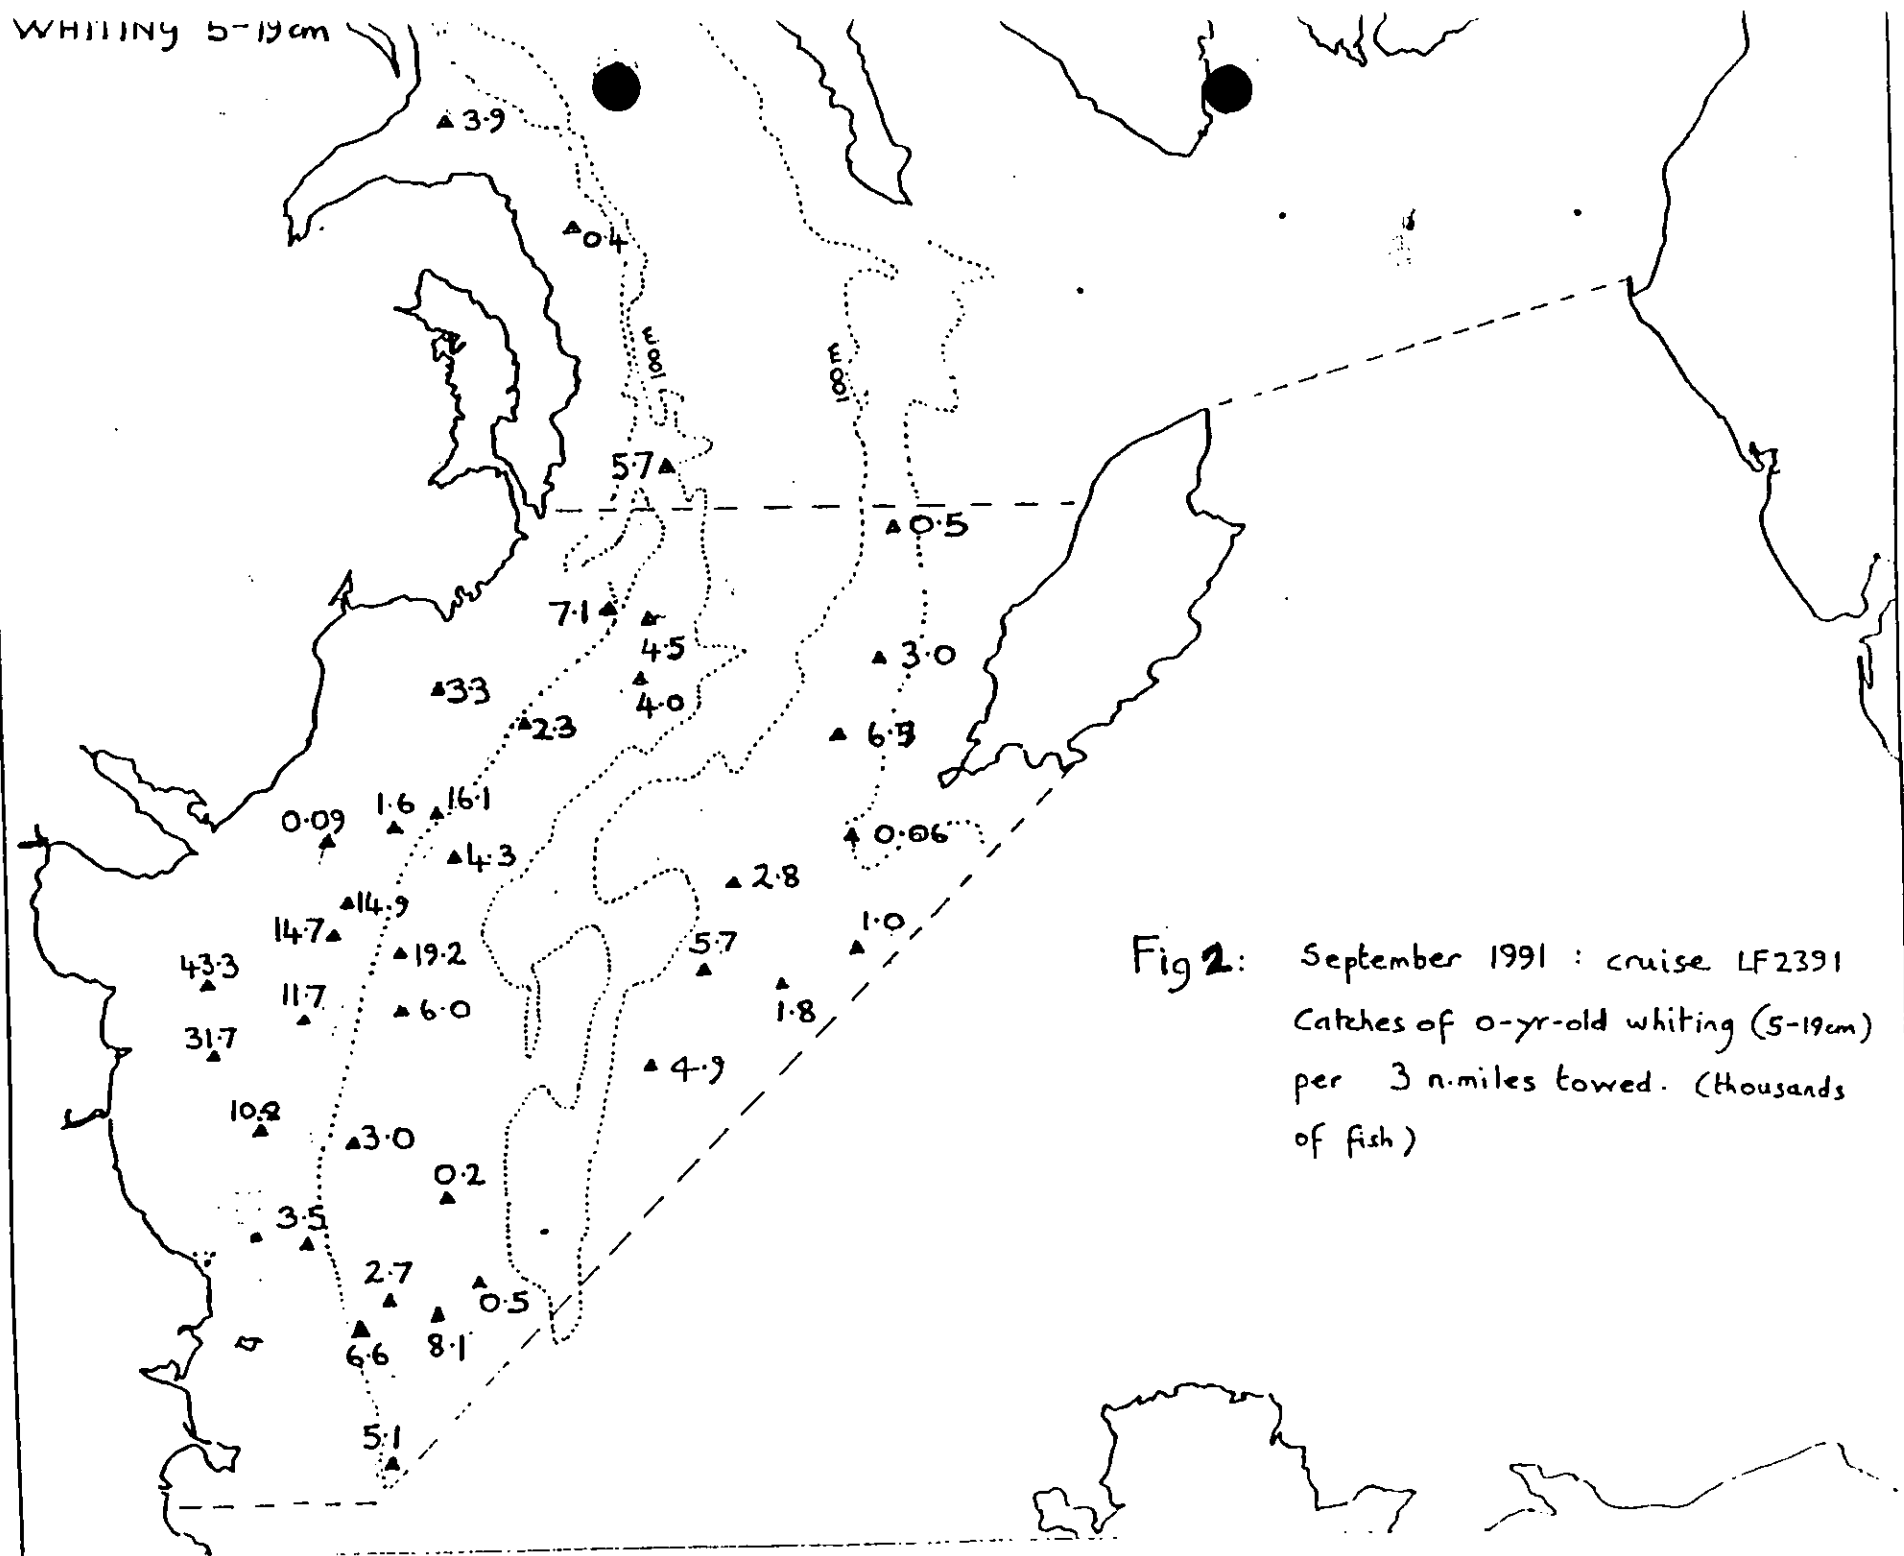 WHITING 5-19cm
3.9
0.4
100m
100m
5.7
0.5
7.1
4.5
3.0
3.3
4.0
2.3
1.6
16.1
0.09
0.06
4.3
2.8
14.9
1.0
14.7
5.7
19.2
43.3
11.7
6.0
1.8
31.7
4.9
3.0
0.2
3.5
2.7
0.5
8.1
6.6
5.1
Fig 2: September 1991 : cruise LF2391
Catches of 0-yr-old whiting (5-19cm)
per 3 n.miles towed. (thousands
of fish)